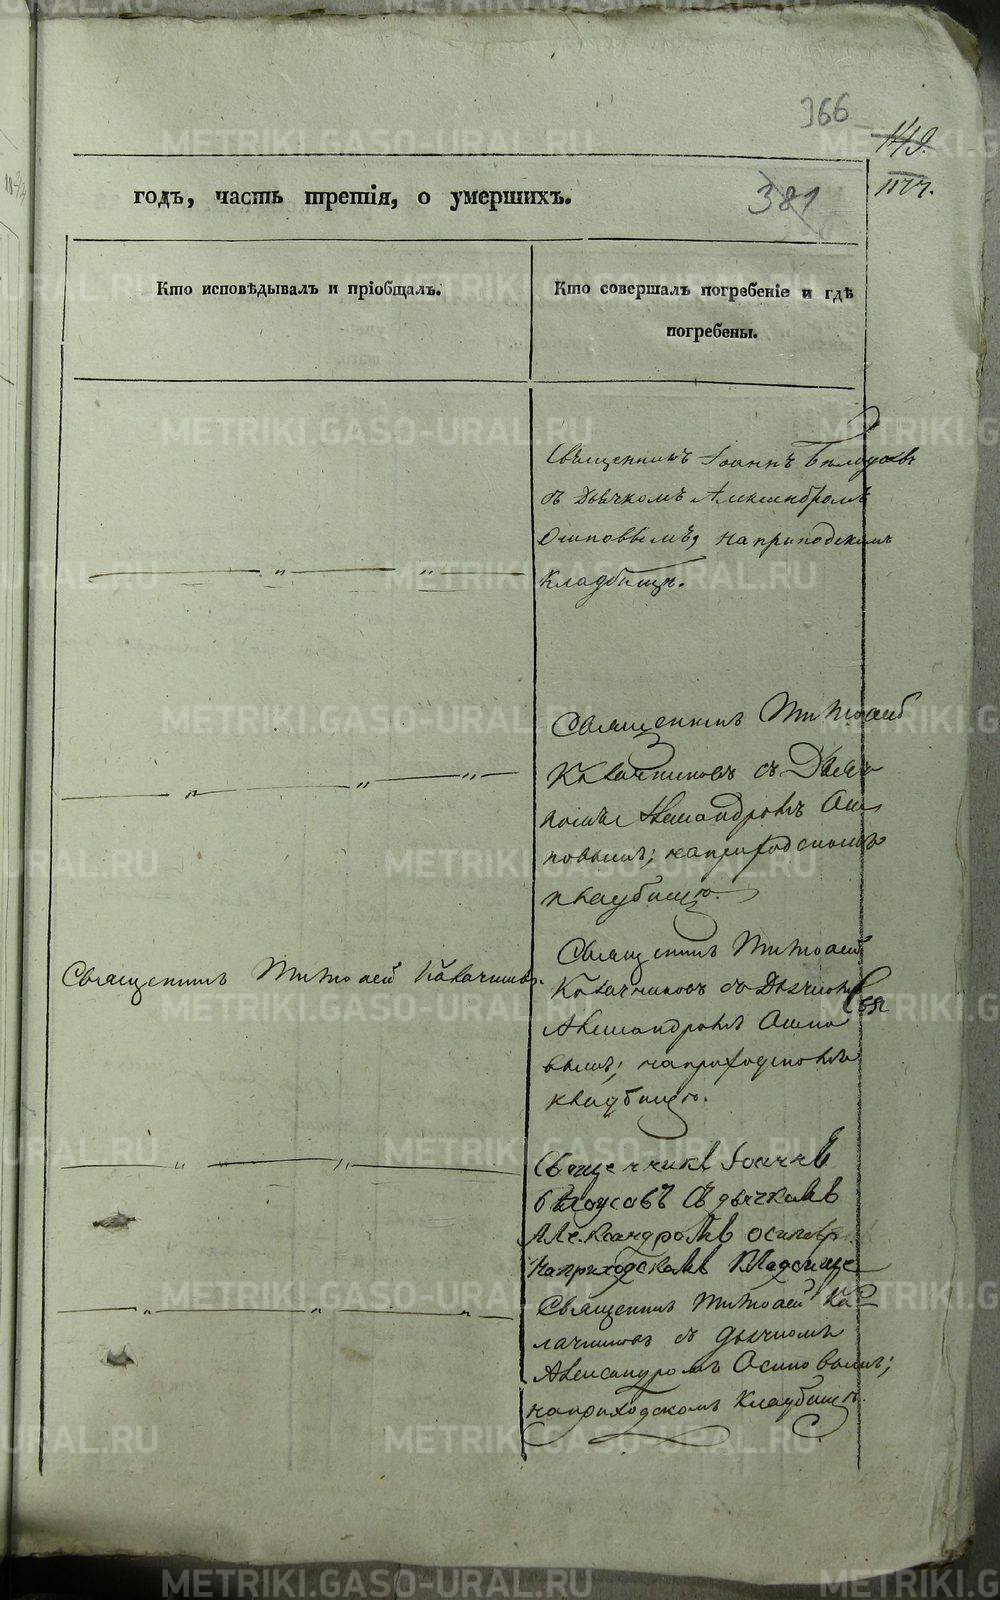 366
149.
годъ, часть третія, о умершихъ.
381
Кто исповѣдывалъ и пріобщалъ.
Кто совершалъ погребеніе и гдѣ
погребены.
Священникъ Іоаннъ Бѣлоусовъ
съ Дьячкомъ Александромъ
Осиповымъ, на приходскомъ
кладбищѣ.
Священникъ Тимоѳей
Калачниковъ съ Дьяч
комъ Александромъ Оси
повымъ; на приходскомъ
кладбищѣ.
Священникъ Тимоѳей Калачников.
Священникъ Тимоѳей
Калачниковъ съ Дьячкомъ
Александромъ Осипо
вымъ; на приходскомъ
кладбищѣ.
Священникъ Іоаннъ
бѣлоусовъ Съ дьячкомъ
Александромъ осипов
на приходскомъ Кладбище
Священникъ Тимоѳей Ка
лачниковъ съ дьячкомъ
Александромъ Осиповымъ;
на приходскомъ Кладбищѣ.
METRIKI.GASO-URAL.RU